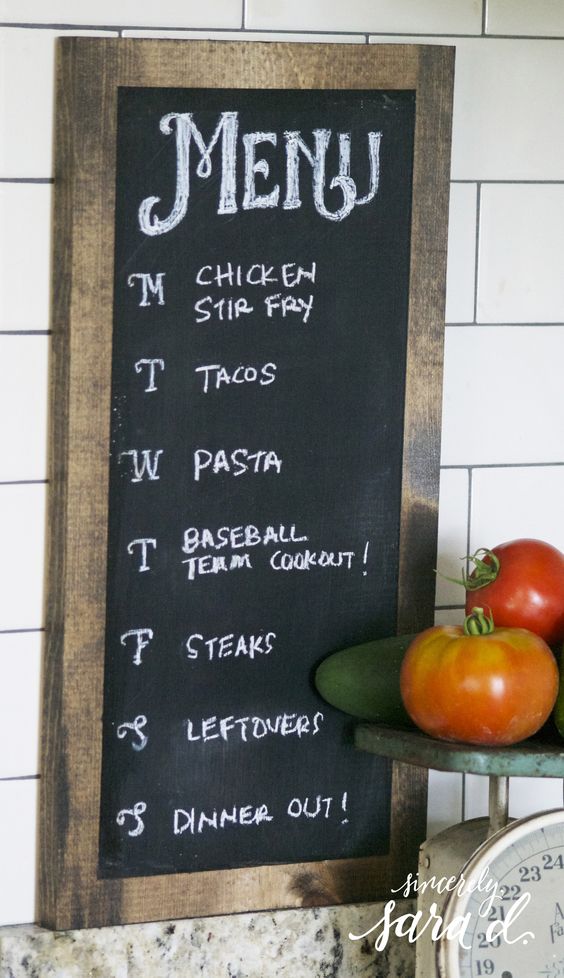 MENU
M CHICKEN
STIR FRY
T TACOS
W PASTA
T BASEBALL
TEAM COOKOUT!
F STEAKS
S LEFTOVERS
S DINNER OUT!
sincerely,
sara d.
24
23
22
21
20
19